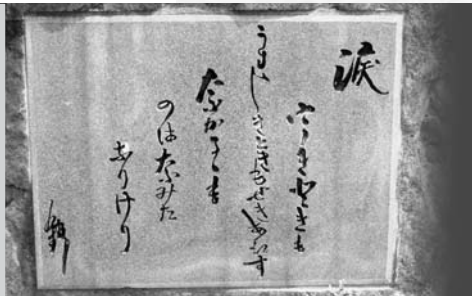 涙
うきときも
うれしきときもせきあへす
なかるゝも
のはなみた
なりけり